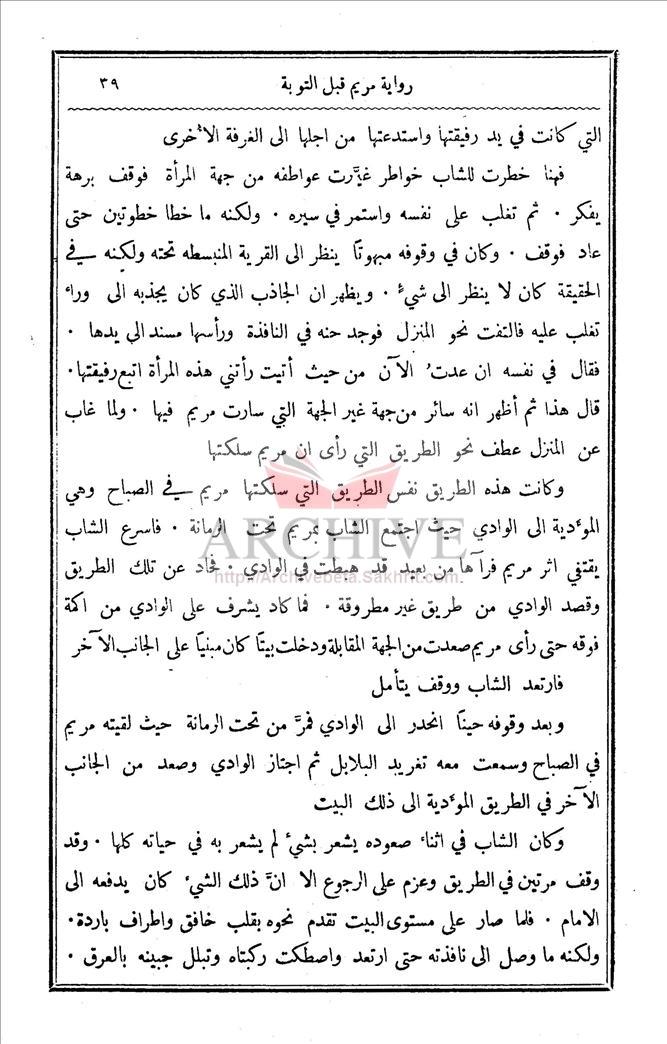 رواية مريم قبل التوبة ٣٩
التي كانت في يد رفيقتها واستدعتها من اجلها الى الغرفة الاخرى
فهنا خطرت للشاب خواطر غيَّرت عواطفه من جهة المرأة فوقف برهة
يفكر · ثم تغلب على نفسه واستمر في سيره · ولكنه ما خطا خطوتين حتى
عاد فوقف · وكان في وقوفه مبهوتًا ينظر الى القرية المنبسطه تحته ولكنه في
الحقيقة كان لا ينظر الى شيء · ويظهر ان الجاذب الذي كان يجذبه الى وراء
تغلب عليه فالتفت نحو المنزل فوجد حنه في النافذة ورأسها مسند الى يدها ·
فقال في نفسه ان عدتُ الآن من حيث أتيت رأتني هذه المرأة اتبع رفيقتها·
قال هذا ثم أظهر انه سائر من جهة غير الجهة التي سارت مريم فيها · ولما غاب
عن المنزل عطف نحو الطريق التي رأى ان مريم سلكتها
وكانت هذه الطريق نفس الطريق التي سلكتها مريم في الصباح وهي
المؤدية الى الوادي حيث اجتمع الشاب بمريم تحت الرمانة · فاسرع الشاب
يقتفي اثر مريم فرآها من بعيد قد هبطت في الوادي · فحاد عن تلك الطريق
وقصد الوادي من طريق غير مطروقة · فما كاد يشرف على الوادي من اكمة
فوقه حتى رأى مريم صعدت من الجهة المقابلة ودخلت بيتًا كان مبنيًا على الجانب الآخر
فارتعد الشاب ووقف يتأمل
وبعد وقوفه حينًا انحدر الى الوادي فمرَّ من تحت الرمانة حيث لقيته مريم
في الصباح وسمعت معه تغريد البلابل ثم اجتاز الوادي وصعد من الجانب
الآخر في الطريق المؤدية الى ذلك البيت
وكان الشاب في اثناء صعوده يشعر بشيء لم يشعر به في حياته كلها · وقد
وقف مرتين في الطريق وعزم على الرجوع الا انَّ ذلك الشيء كان يدفعه الى
الامام · فلما صار على مستوى البيت تقدم نحوه بقلب خافق واطراف باردة·
ولكنه ما وصل الى نافذته حتى ارتعد واصطكت ركبتاه وتبلل جبينه بالعرق ·
ARCHIVE
http://Archivebeta.Sakhrit.com